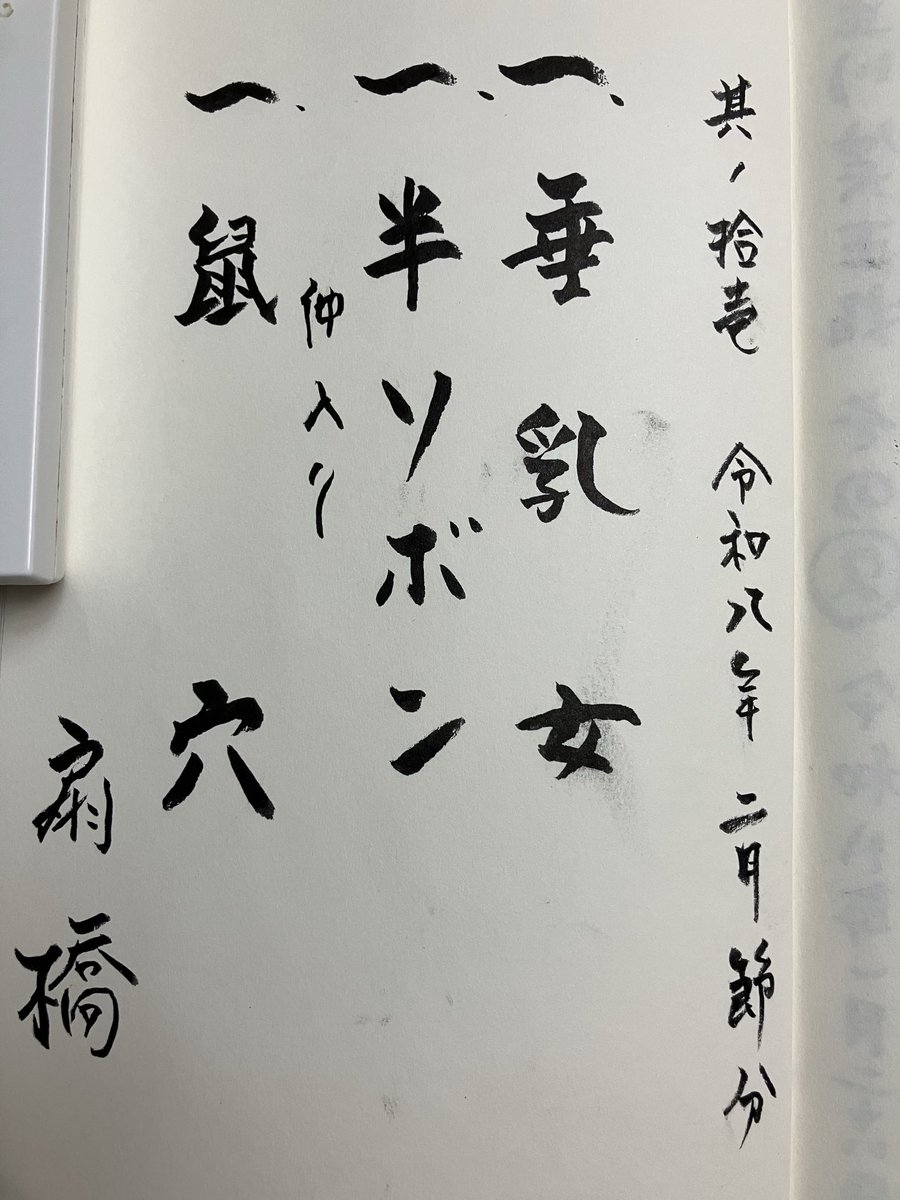 其ノ拾壱 令和八年 二月節分
一、垂乳女
一、半ソボン
仲入り
一、鼠穴
扇橋